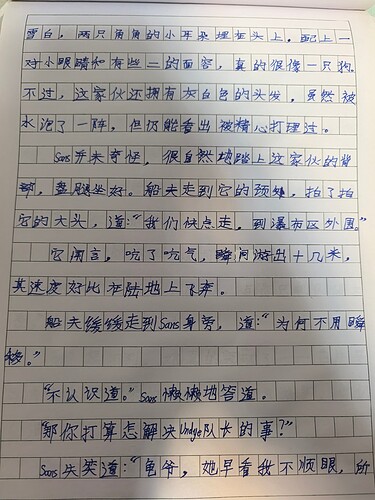 雪白，两只角角的小耳朵埋在头上，配上一
对小眼睛和有些二的面容，真的很像一只狗。
不过，这家伙还拥有灰白色的头发，虽然被
水泡了一阵，但仍能看出被精心打理过。
Sans并未奇怪，很自然地踏上这家伙的背
部，盘腿坐好。船夫走到它的颈处，拍了拍
它的大头，道：“我们快点走，到瀑布区外围。”
它闻言，吭了吭气，瞬间游出十几米，
其速度好比在陆地上飞奔。
船夫缓缓走到Sans身旁，道：“为何不用瞬
移。”
“不认识道。”Sans懒懒地答道。
“那你打算怎解决Undye队长的事？”
Sans失笑道：“龟爷，她早看我不顺眼，所